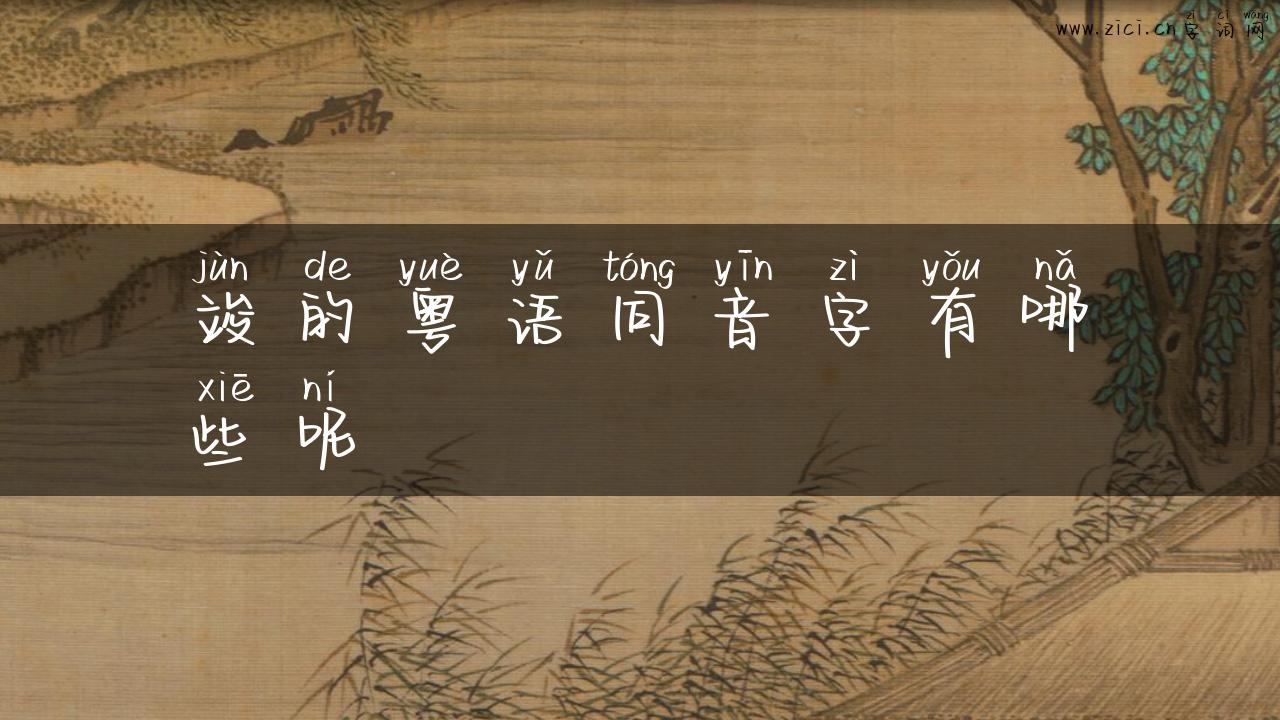 zì cí wǎng
www.zici.cn字词网
jùn de yuè yǔ tóng yīn zì yǒu nǎ
竣的粤语同音字有哪
xiē ní
些呢